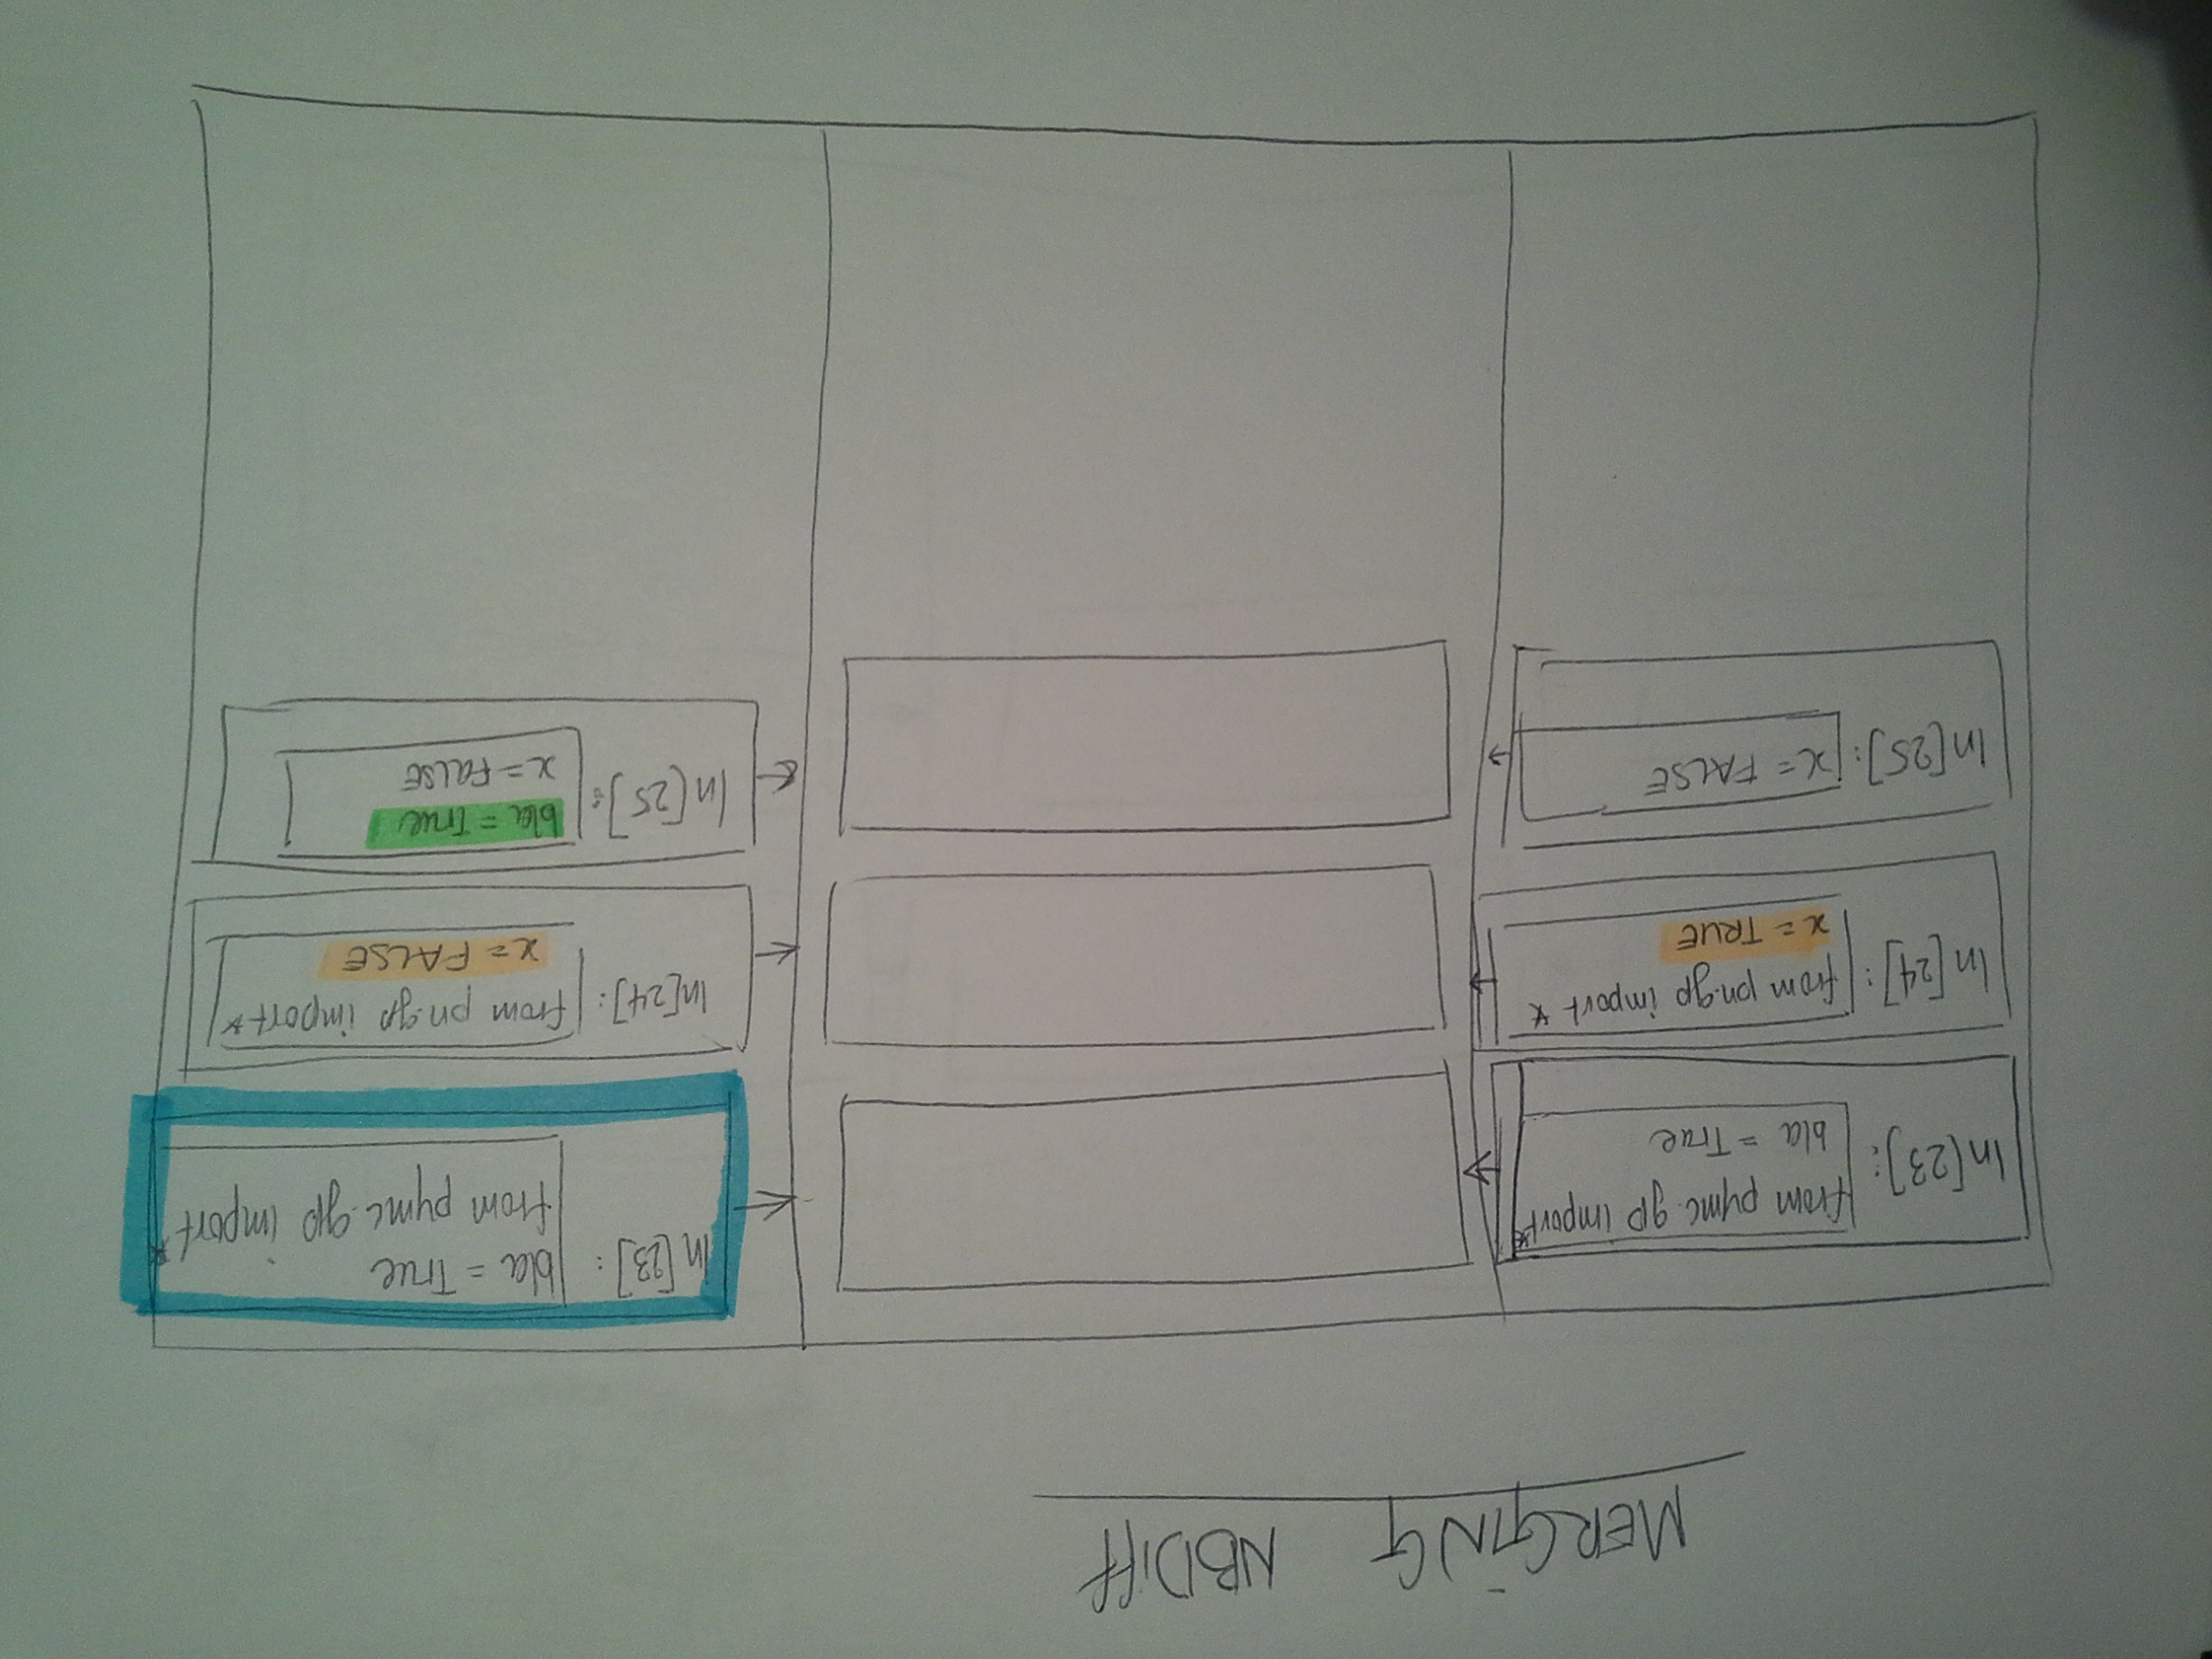 MERGING NBDiff
In [23]:
from pymc.gp import *
bla = True
In [24]:
from pn.gp import *
x = TRUE
In [25]:
x = FALSE
In [23]:
bla = True
from pymc.gp import *
In [24]:
from pn.gp import *
x = FALSE
In [25]:
bla = True
x = FALSE